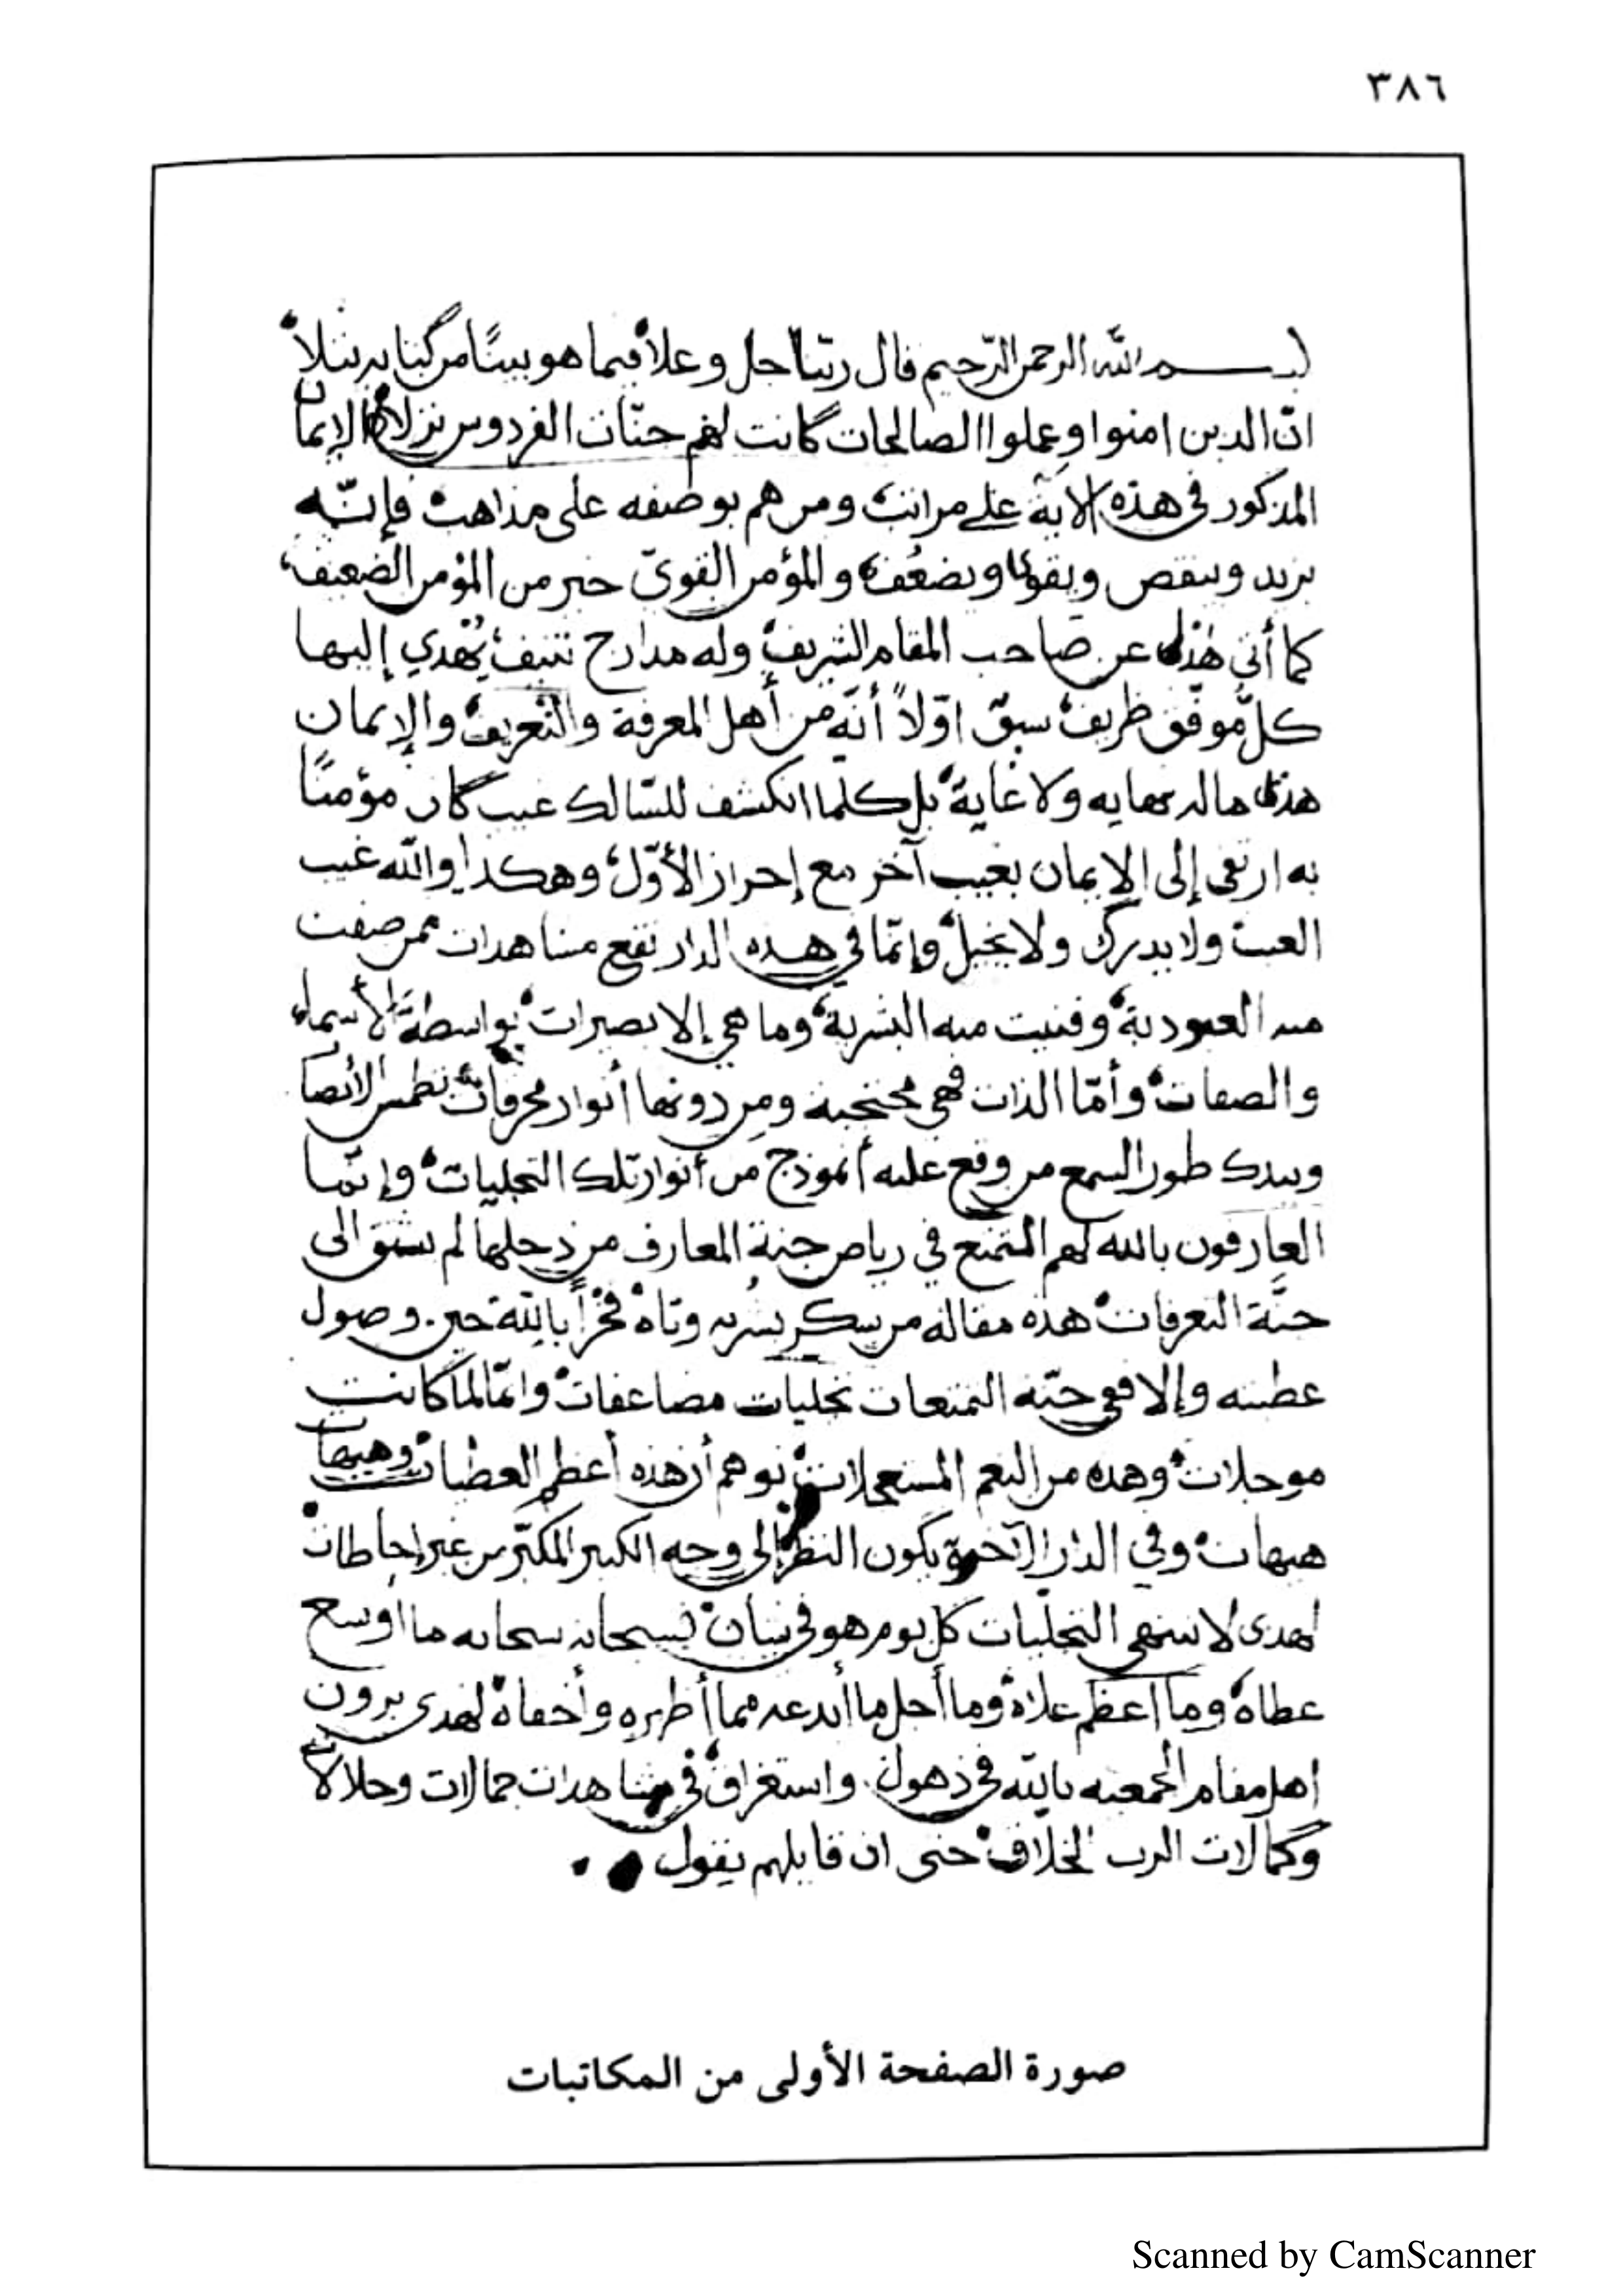 ٣٨٦
بسم الله الرحمن الرحيم قال ربنا جل وعلا فيما هو بيننا من كتابه يتلا
ان الذين امنوا وعملوا الصالحات كانت لهم جنات الفردوس نزلا الإيما
المذكور في هذه الاية على مراتب ومن هم بوصفه على مذاهب فإنه
يزيد وينقص ويقوا ويضعف والمؤمن القوي خير من المؤمن الضعيف
كما أتى هذا عن صاحب المقام الشريف وله مدارج تنيف يهدي إليها
كل موفق ظريف سبق اولاً أنه من أهل المعرفة والتعريف والإيمان
هذا ماله نهايه ولا غاية بل كلما انكشف للسالك غيب كان مؤمنًا
به ارتقى إلى الإيمان بغيب آخر مع إحراز الأول وهكذا والله غيب
الغيب ولا يدرك ولا يخيل وإنما في هذه الدار تقع مشاهدات ممن صفت
منه العبودية وفنيت منه البشرية وما هي إلا تبصيرات بواسطة الأسماء
والصفات وأما الذات فهي محتجبة ومن دونها أنوار محرقات تطمس الأبصا
ويندك طور السمع من وقع عليه أنموذج من أنوار تلك التجليات وإنما
العارفون بالله لهم التمتع في رياض جنة المعارف من دخلها لم يشتق الى
جنة التعرفات هذه مقالة من سكر بشربه وتاه فخراً بالله حين وصول
عطيته وإلا ففي جنة التمتعات تجليات مضاعفات وانما لما كانت
موجلات وهذه من النعم المستعجلات توهم أن هذه أعظم العطيات وهيهات
هيهات وفي الدار الآخرة يكون النظر إلى وجه الكبير المكبر من غير إحاطات
لهذى لا تنتهي التجليات كل يوم هو في شأن فسبحانه سبحانه ما اوسع
عطاه وما اعظم علاه وما أجل ما أبدعه مما أظهره وأخفاه لهذى يرون
اهل مقام الجمعيه بالله في ذهول واستغراق في مشاهدات جمالات وجلالات
وكمالات الرب الخلاق حتى ان قايلهم يقول
صورة الصفحة الأولى من المكاتبات
Scanned by CamScanner